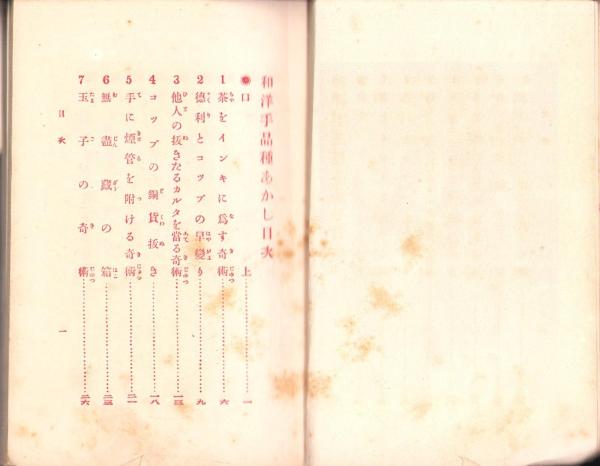 和洋手品種あかし目次
●口上…………一
1 茶をインキに爲す奇術…………六
2 德利とコップの早變り…………九
3 他人の拔きたるカルタを當る奇術…………一三
4 コップの銅貨拔き…………一八
5 手に煙管を附ける奇術…………二一
6 無盡藏の箱…………二三
7 玉子の奇術…………二六
目次
一